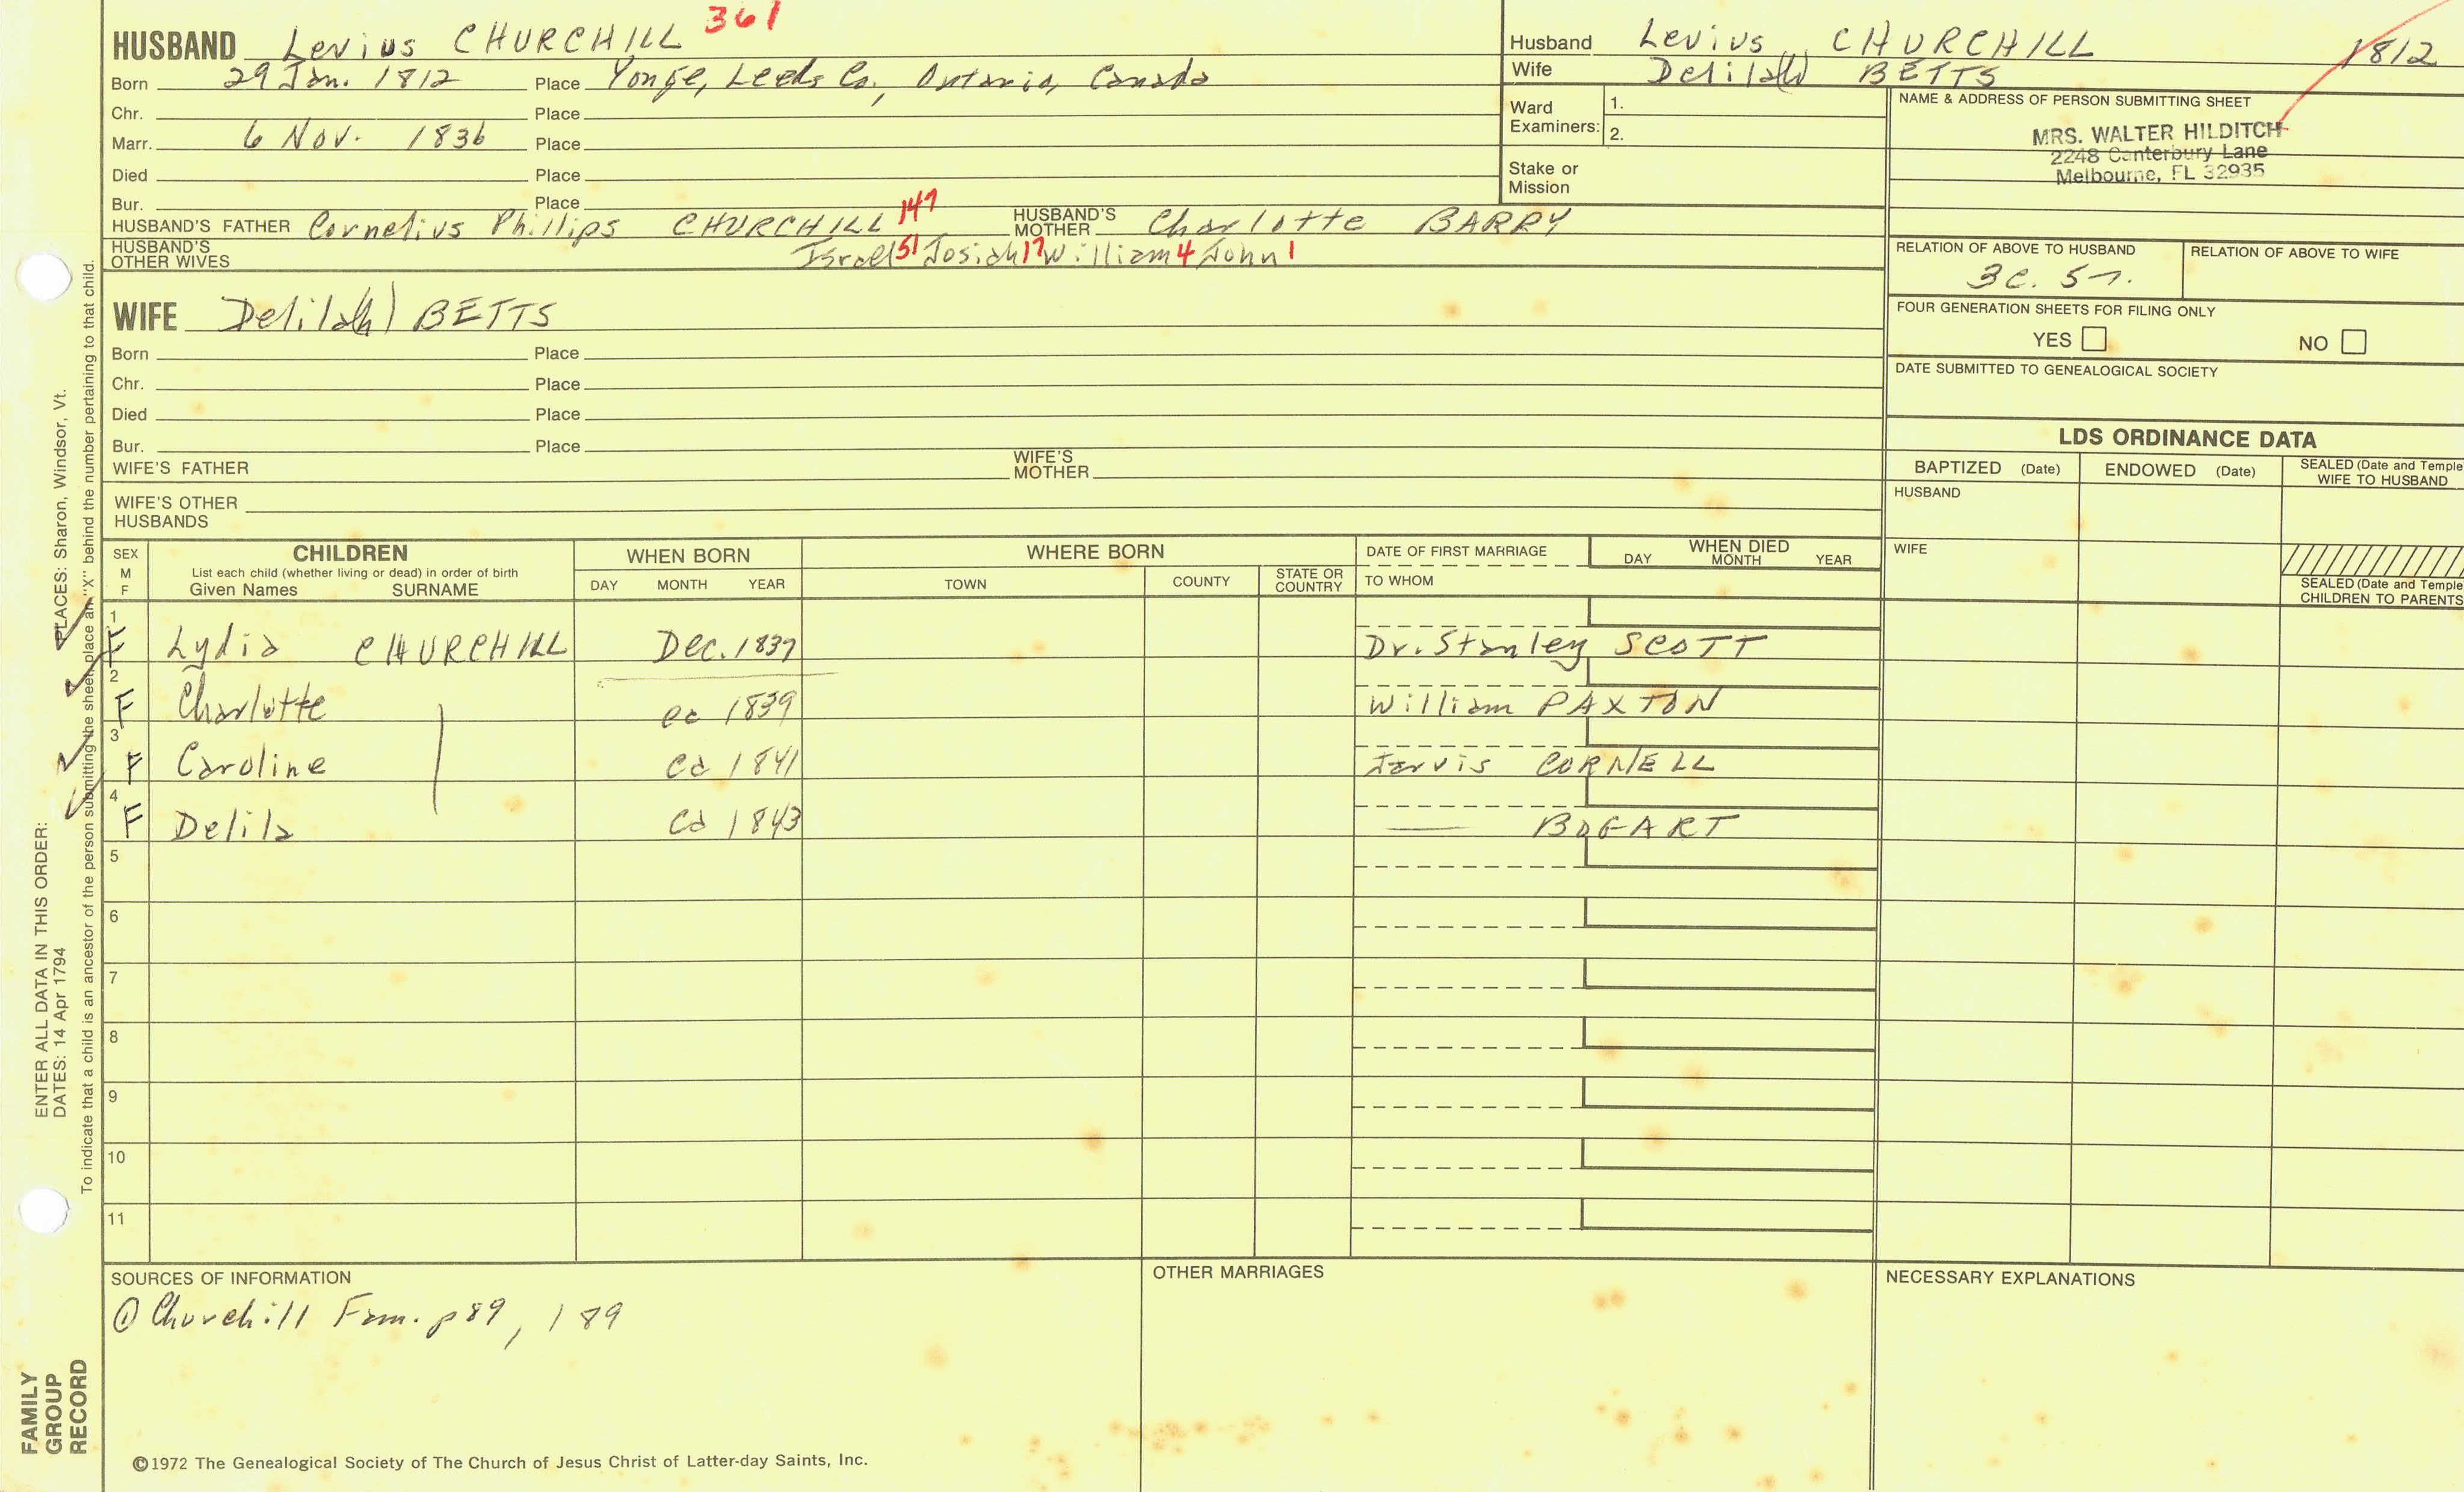 361
HUSBAND Levius CHURCHILL
Born 29 Jan. 1812 Place Yonge, Leeds Co., Ontario, Canada
Chr. Place
Marr. 6 Nov. 1836 Place
Died Place
Bur. Place
HUSBAND'S FATHER Cornelius Phillips CHURCHILL 147 HUSBAND'S MOTHER Charlotte BARRY
HUSBAND'S OTHER WIVES Israel 51 Josiah 17 William 4 John 1
WIFE Delila(h) BETTS
Born Place
Chr. Place
Died Place
Bur. Place
WIFE'S FATHER WIFE'S MOTHER
WIFE'S OTHER HUSBANDS
Husband Levius CHURCHILL 1812
Wife Delila(h) BETTS
Ward Examiners: 1.
2.
Stake or Mission
NAME & ADDRESS OF PERSON SUBMITTING SHEET
MRS. WALTER HILDITCH
2248 Canterbury Lane
Melbourne, FL 32935
RELATION OF ABOVE TO HUSBAND RELATION OF ABOVE TO WIFE
3c. 5r.
FOUR GENERATION SHEETS FOR FILING ONLY
YES NO
DATE SUBMITTED TO GENEALOGICAL SOCIETY
LDS ORDINANCE DATA
BAPTIZED (Date) ENDOWED (Date) SEALED (Date and Temple WIFE TO HUSBAND
HUSBAND
WIFE
SEALED (Date and Temple
CHILDREN TO PARENTS
SEX M F
CHILDREN
List each child (whether living or dead) in order of birth
Given Names SURNAME
WHEN BORN
DAY MONTH YEAR
WHERE BORN
TOWN COUNTY STATE OR COUNTRY
DATE OF FIRST MARRIAGE
TO WHOM
WHEN DIED
DAY MONTH YEAR
1 F Lydia CHURCHILL Dec. 1837 Dr. Stanley SCOTT
2 F Charlotte ca 1839 William PAXTON
3 F Caroline ca 1841 Jarvis CORNELL
4 F Delila ca 1843 — BOGART
5
6
7
8
9
10
11
SOURCES OF INFORMATION
① Churchill Fam. p 89, 189
OTHER MARRIAGES
NECESSARY EXPLANATIONS
©1972 The Genealogical Society of The Church of Jesus Christ of Latter-day Saints, Inc.
FAMILY
GROUP
RECORD
ENTER ALL DATA IN THIS ORDER:
DATES: 14 Apr 1794 PLACES: Sharon, Windsor, Vt.
To indicate that a child is an ancestor of the person submitting the sheet, place an "X" behind the number pertaining to that child.